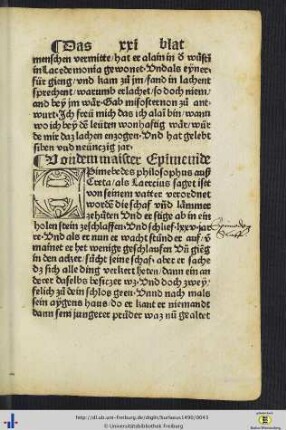 Das xxi blat
menschen vermitte / hat er alain in d̄ wůsti
in Lacedemonia gewonet. Vnd als eyner
für gieng / vnd kam zů jm / fand in lachent
sprechent / warumb er lachet / so doch niem /
and bey jm wår. Gab misosternon zů ant-
wurt. Ich freü mich das ich alain bin / wann
wo ich bey dē leüten wonhafftig wår / wür
de mir daz lachen enzogen. Vnd hat gelebt
siben vnd neünczig jar.
Von dem maister Epimenide
Epimebedes philosophus auß
Creta / als Laercius saget ist
von seinem vatter verordnet
wordē die schaf vnd lämmer
zehůten Vnd er stige ab in ein
holen stein zeschlaffen Vnd schlief lxxv jar
Vnd als er nun er wacht stůnd er auf / vn̄
mainet er het wenige geschlaufen Vn̄ gieng
in den acker / sůcht seine schaf. aber er sache
dz sich alle ding verkert heten / dann ein an
derer daselbs besiczer wz. Vnd doch zwey /
felich zů dein schlos geen. Vnnd nach mals
sein aygens haus. do er kant er niemandt
dann sein jungerer průder waz nū gealtet
http://dl.ub.uni-freiburg.de/diglit/burlaeus1490/0043
© Universitätsbibliothek Freiburg